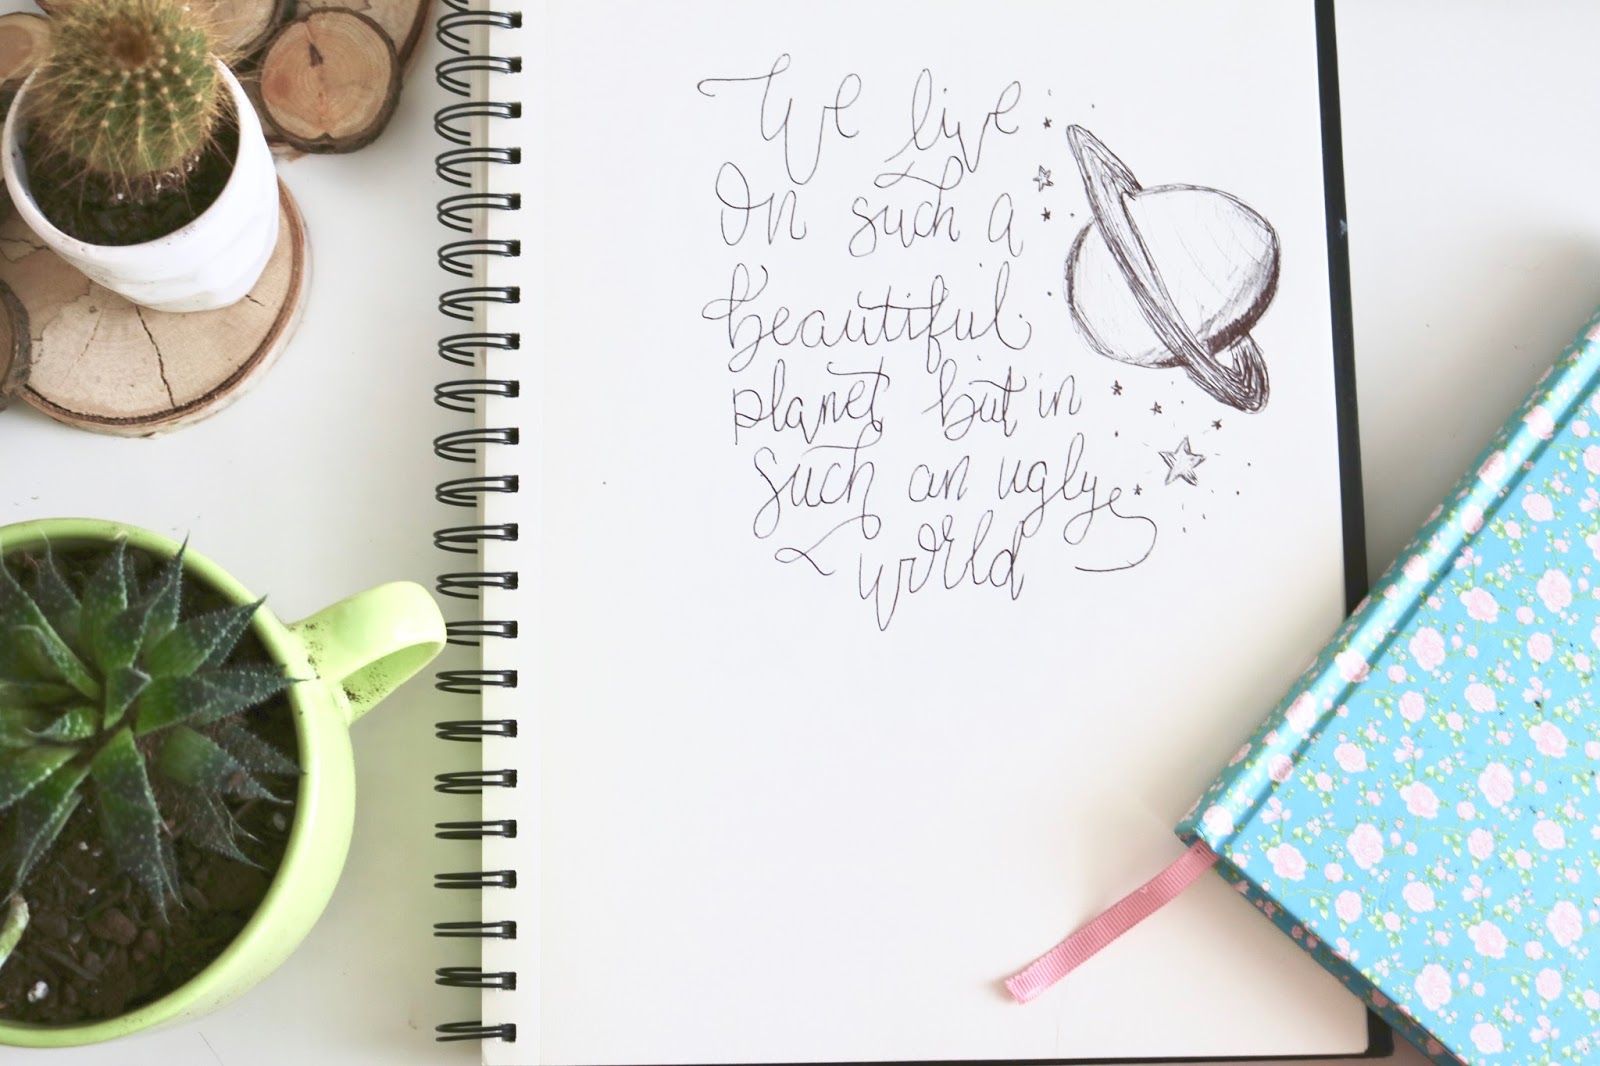 We live
On such a
beautiful
planet but in
such an ugly
world